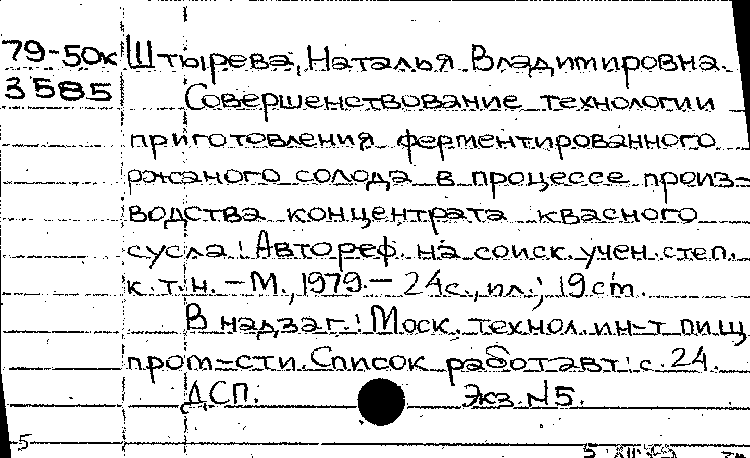 79-50к Штырева, Наталья Владимировна.
3585 Совершенствование технологии
приготовления ферментированного
ржаного солода в процессе произ-
водства концентрата квасного
сусла: Автореф. на соиск. учен. степ.
к.т.н. - М., 1979. - 24с., ил.; 19 см.
В надзаг.: Моск. технол. ин-т пищ.
пром-сти. Список работ авт.: с. 24.
ДСП. Экз. №5.
5